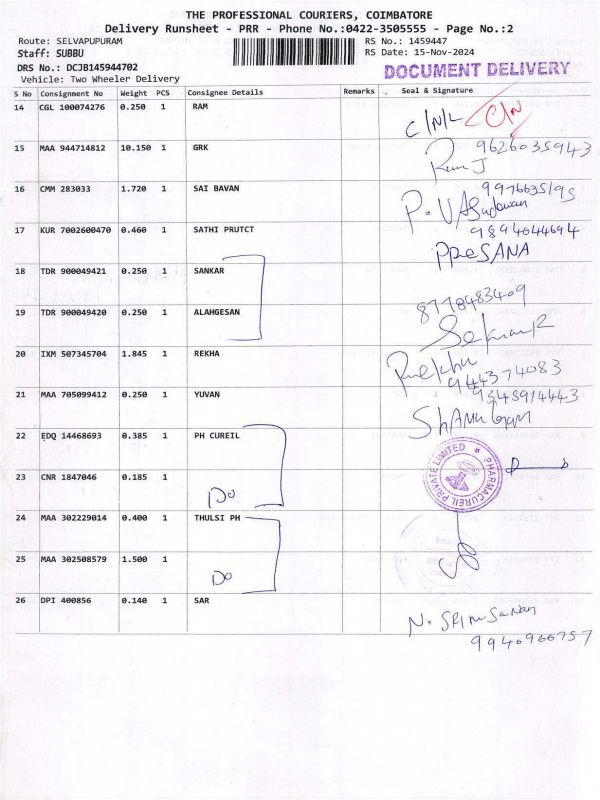 THE PROFESSIONAL COURIERS, COIMBATORE
Delivery Runsheet - PRR - Phone No.:0422-3505555 - Page No.:2
Route: SELVAPUPURAM RS No.: 1459447
Staff: SUBBU RS Date: 15-Nov-2024
DRS No.: DCJB145944702 DOCUMENT DELIVERY
Vehicle: Two Wheeler Delivery
S No Consignment No Weight PCS Consignee Details Remarks Seal & Signature
14 CGL 100074276 0.250 1 RAM C/N/L C/N
15 MAA 944714812 10.150 1 GRK 9626035943
Ram J
16 CMM 283033 1.720 1 SAI BAVAN 9976635195
P. VASudevan
17 KUR 7002600470 0.460 1 SATHI PRUTCT 9894644694
PRESANA
18 TDR 900049421 0.250 1 SANKAR
8778483409
19 TDR 900049420 0.250 1 ALAHGESAN
20 IXM 507345704 1.845 1 REKHA
944374083
21 MAA 705099412 0.250 1 YUVAN
22 EDQ 14468693 0.385 1 PH CUREIL
PHARMACUREIL PRIVATE LIMITED
23 CNR 1847046 0.185 1
Do
24 MAA 302229014 0.400 1 THULSI PH
25 MAA 302508579 1.500 1
Do
26 DPI 400856 0.140 1 SAR
9940966757